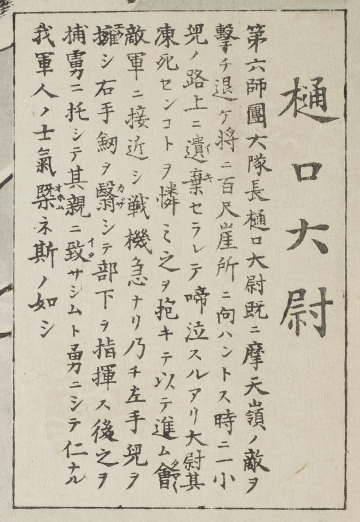 樋口大尉
第六師團大隊長樋口大尉既ニ摩天嶺ノ敵ヲ
擊チ退ケ將ニ百尺崖所ニ向ハントス時ニ一小
兒ノ路上ニ遺棄セラレテ啼泣スルアリ大尉其
凍死センコトヲ憐ミ之ヲ抱キテ以テ進ム會
敵軍ニ接近シ戦機急ナリ乃チ左手兒ヲ
擁シ右手劒ヲ翳シテ部下ヲ指揮ス後之ヲ
捕虜ニ托シテ其親ニ致サシムト勇ニシテ仁ナル
我軍人ノ士氣槩ネ斯ノ如シ